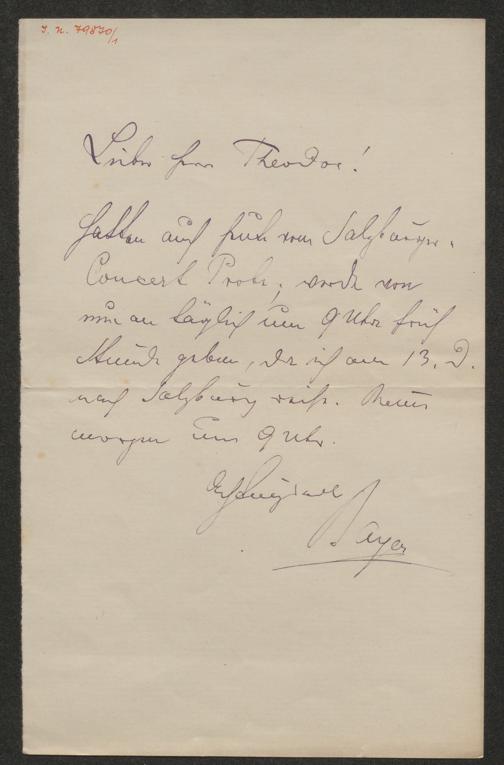 J. N. 79870/1
Lieber Herr Theodor!
Hatten auch heute vom Salzburger-
Concert Probe; werde von
nun an täglich um 9 Uhr früh
Stunde geben, da ich am 13. d.
nach Salzburg reise. Also
morgen um 9 Uhr.
Bayer